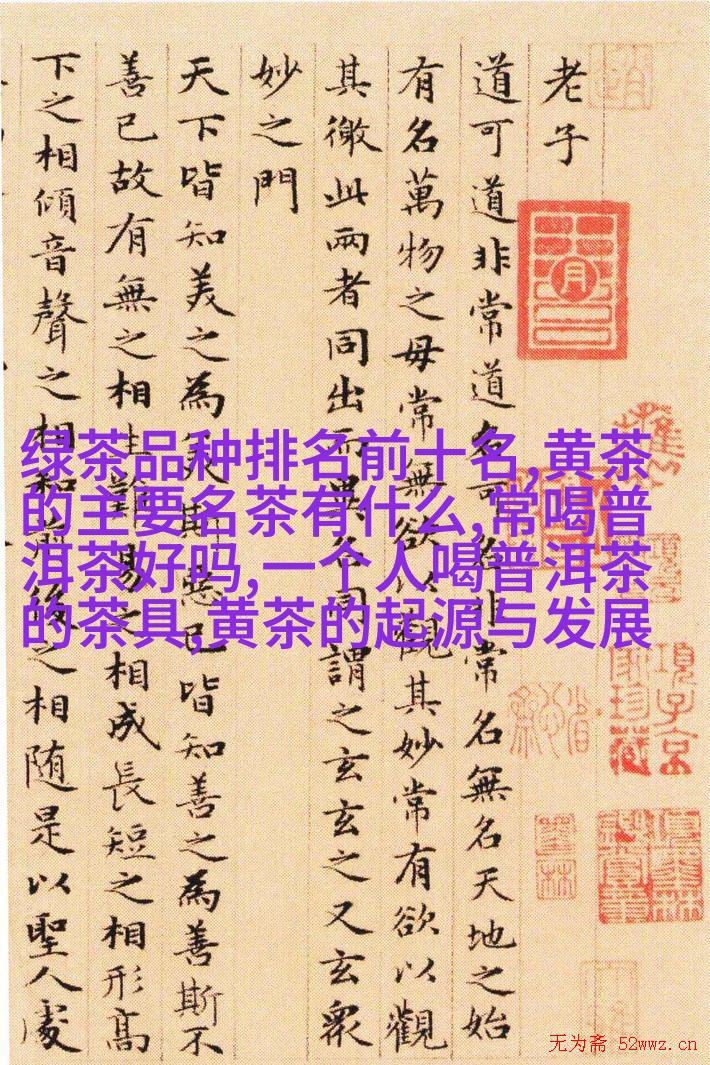 老子
道可道非常道名可名非常名無名天地之始
有名萬物之母常無欲以觀其妙常有欲以觀
其徼此兩者同出而異名同謂之玄玄之又玄衆
妙之門
天下皆知美之為美斯惡已皆知善之為善斯不
善已故有無之相生難易之相成長短之相形高
下之相傾音聲之相和前後之相随是以聖人處
绿茶品种排名前十名,黄茶
的主要名茶有什么,常喝普
洱茶好吗,一个人喝普洱茶
的茶具,黄茶的起源与发展
項子京
家珍藏
无为斋 52wwz.cn